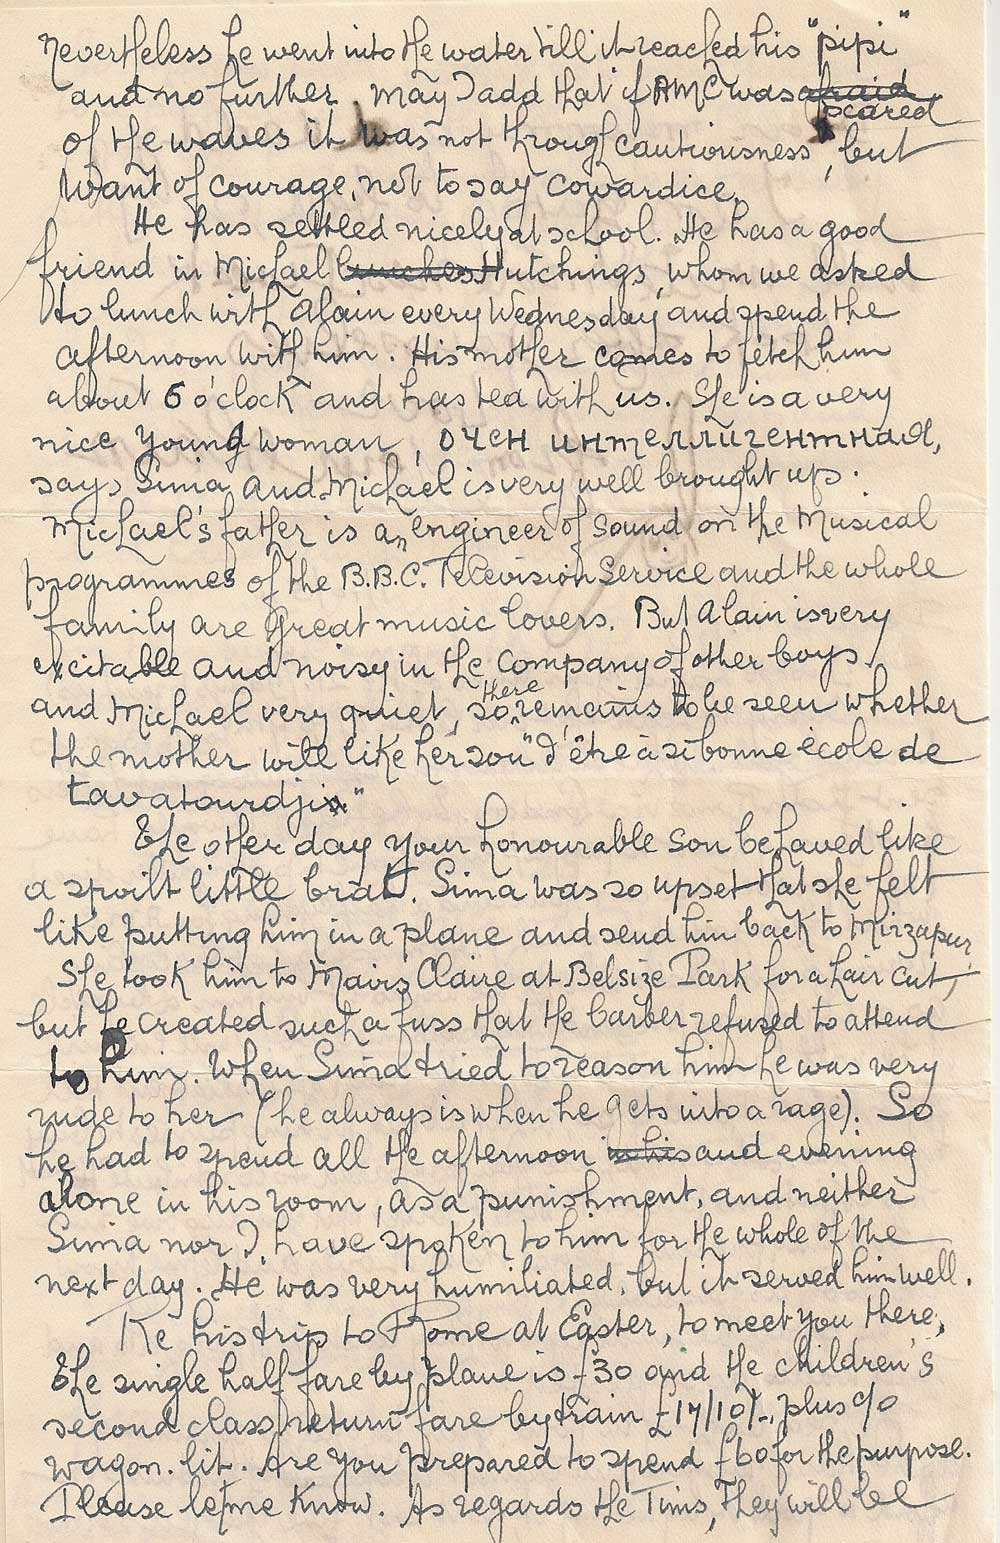 nevertheless he went into the water till it reached his "pipi"
and no further. May I add that if AMC was afraid scared
of the waves it was not through cautiousness, but
want of courage, not to say cowardice.
He has settled nicely at school. He has a good
friend in Michael lunches Hutchings, whom we asked
to lunch with Alain every Wednesday and spend the
afternoon with him. His mother comes to fetch him
about 6 o'clock and has tea with us. She is a very
nice young woman, очен интеллигентная,
says Sima and Michael is very well brought up.
Michael's father is an engineer of sound on the Musical
programmes of the B.B.C. Television Service and the whole
family are great music lovers. But Alain is very
excitable and noisy in the company of other boys
and Michael very quiet, so there remains to be seen whether
the mother will like her son "d'être à si bonne école de
tavatourdjix"
The other day your honourable son behaved like
a spoilt little brat. Sima was so upset that she felt
like putting him in a plane and send him back to Mirzapur
She took him to Maris Claire at Belsize Park for a hair cut,
but he created such a fuss that the barber refused to attend
to him. When Sima tried to reason him he was very
rude to her (he always is when he gets into a rage). So
he had to spend all the afternoon in his and evening
alone in his room, as a punishment, and neither
Sima nor I, have spoken to him for the whole of the
next day. He was very humiliated, but it served him well.
Re his trip to Rome at Easter, to meet you there,
The single half fare by plane is £30 and the children's
second class return fare by train £17/10/-, plus c/o
wagon. lit. Are you prepared to spend £60 for the purpose.
Please let me know. As regards the Tims, they will be